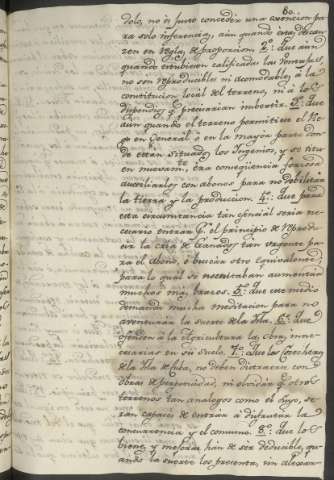 60..
dole, no es justo conceder una exencion pa-
ra solo inferencias, aun quando estas descan-
cen en reglas de proporcion. 2.º que aun
quando estubiesen calificadas las ventajas,
no son reproducibles ni acomodables à la
constitucion local del terreno, ni à los
dispendios q.e precisarian imbertir. 3.º que
aun quando el terreno permitiera el Rie-
go en General ò en la mayor parte don-
de estan situados los Ingenios, y se tiene
en nuevam.te era conseqüencia forzosa
auxiliarlos con abonos para no debilitar
la tierra y la produccion. 4.º que para
esta circunstancia tan genial seria ne-
cesario entrar p.r el principio de reprodu-
cir la cria de Ganados tan urgente pa-
ra el abono, ò buscar otro equivalente,
para lo qual se necesitaban aumentar
muchos mas brazos. 5.º que este medio
demanda mucha meditacion para no
aventurar la suerte de la Ysla. 6.º que
ofenden à la Agricultura las obras inne-
cesarias en su suelo. 7.º que los Cosecheros
de la Ysla de Cuba, no deben distraerse con
obras de esponsadas, ni olvidar q.e otros
terrenos tan analogos como el suyo, se-
ran capaces de entrar à disfrutar la
concurrencia y el consumo. 8.º que los
bienes y mejoras han de ser deducibles, qu-
ando la suerte los presenta, sin alexar-